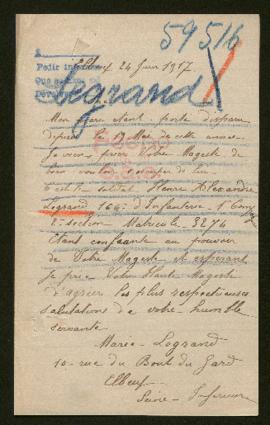 59516
Pedir in
Que
Elbeuf 24 Juin 1917
Legrand
Mon Mari étant porté disparu
depuis le 19 Mai de cette année
Je viens prier Votre Majesté de
bien vouloir s'occuper de lui
C'est le soldat Henri Alexandre
Legrand 164e d'Infanterie 1e Comp
2e section Matricule 8274
Étant confiante au pouvoir
de Votre Majesté et espérant
je prie Votre Haute Majesté
d'agréer les plus respectueuses
salutations de votre humble
servante
Marie Legrand
10 rue du Bout du Gard
Elbeuf
Seine Inférieure